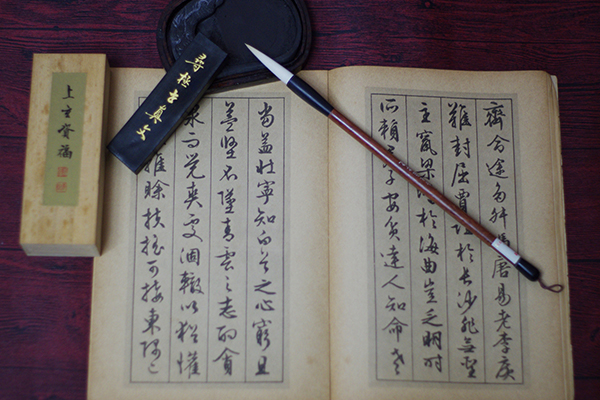 齊命途多舛馮唐易老李廣
難封屈賈誼於長沙非無聖
主竄梁鴻於海曲豈乏明时
所賴君子安貧達人知命老
當益壯寧知白首之心窮且
益堅不墜青雲之志酌貪
泉而覺爽處涸轍以猶懽
雖賒扶搖可接東隅已
尋極真文
上福